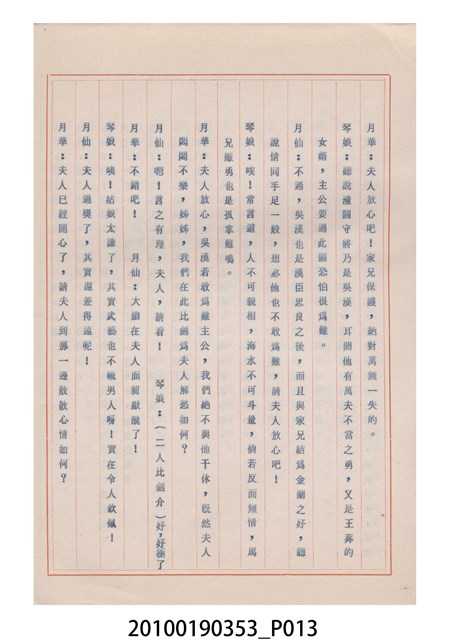 月華：夫人放心吧！家兄保護，絕對萬無一失的。
琴娘：聽說潼關守將乃是吳漢，耳聞他有萬夫不當之勇，又是王莽的
女婿，主公要過此關恐怕很為難。
月仙：不過，吳漢也是漢臣忠良之後，而且與家兄結為金蘭之好，聽
說情同手足一般，想必他也不敢為難，請夫人放心吧！
琴娘：唉！常言道，人不可貌相，海水不可斗量，倘若反面無情，馬
兄雖勇也是孤掌難鳴。
月華：夫人放心，吳漢若敢為難主公，我們絕不與他干休，既然夫人
悶悶不樂，姊姊，我們在此比劍為夫人解愁如何？
月仙：嗯！言之有理，夫人，請看！　琴娘：（二人比劍介）好，好極了
月華：不錯吧！　月仙：大膽在夫人面前獻醜了！
琴娘：咦！姑娘太謙了，其實武藝也不輸男人呀！實在令人欽佩！
月仙：夫人過獎了，其實還差得遠呢！
月華：夫人已經開心了，請夫人到那一邊散散心情如何？
20100190353_P013